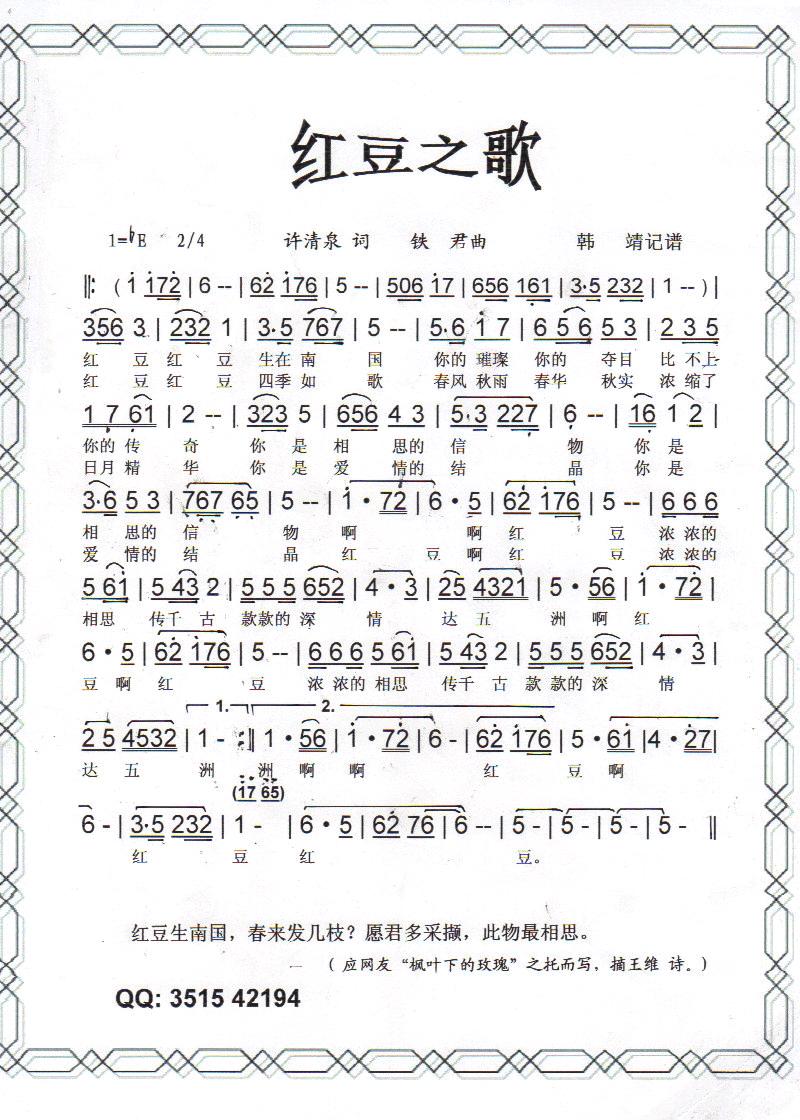 红豆之歌
1=♭E 2/4 许清泉 词 铁 君曲 韩 靖记谱
‖: ( 1 172 | 6 -- | 62 176 | 5 -- | 506 17 | 656 161 | 3·5 232 | 1 -- ) |
356 3 | 232 1 | 3·5 767 | 5 -- | 5·6 1 7 | 6 5 6 5 3 | 2 3 5
红 豆 红 豆 生在 南 国 你的 璀璨 你的 夺目 比 不上
红 豆 红 豆 四季 如 歌 春风 秋雨 春华 秋实 浓 缩了
1 7 61 | 2 -- | 323 5 | 656 4 3 | 5·3 227 | 6 -- | 16 1 2 |
你的 传 奇 你 是 相 思的 信 物 你 是
日月 精 华 你 是 爱 情的 结 晶 你 是
3·6 5 3 | 767 65 | 5 -- | 1 · 72 | 6 · 5 | 62 176 | 5 -- | 6 6 6
相 思的 信 物 啊 啊 红 豆 浓 浓的
爱 情的 结 晶 红 豆 啊 红 豆 浓 浓的
5 61 | 5 43 2 | 5 5 5 652 | 4 · 3 | 25 4321 | 5 · 56 | 1 · 72 |
相思 传千 古 款款的 深 情 达 五 洲 啊 红
6 · 5 | 62 176 | 5 -- | 6 6 6 5 61 | 5 43 2 | 5 5 5 652 | 4 · 3 |
豆 啊 红 豆 浓 浓的 相思 传千 古 款 款的 深 情
1. 2.
2 5 4532 | 1 - :‖ 1 · 56 | 1 · 72 | 6 - | 62 176 | 5 · 61 | 4 · 27 |
达 五 洲 洲 啊 啊 红 豆 啊
(17 65)
6 - | 3·5 232 | 1 - | 6 · 5 | 62 76 | 6 -- | 5 - | 5 - | 5 - | 5 - ‖
红 豆 红 豆。
红豆生南国，春来发几枝？愿君多采撷，此物最相思。
— （ 应网友“枫叶下的玫瑰”之托而写，摘王维 诗。）
QQ: 3515 42194